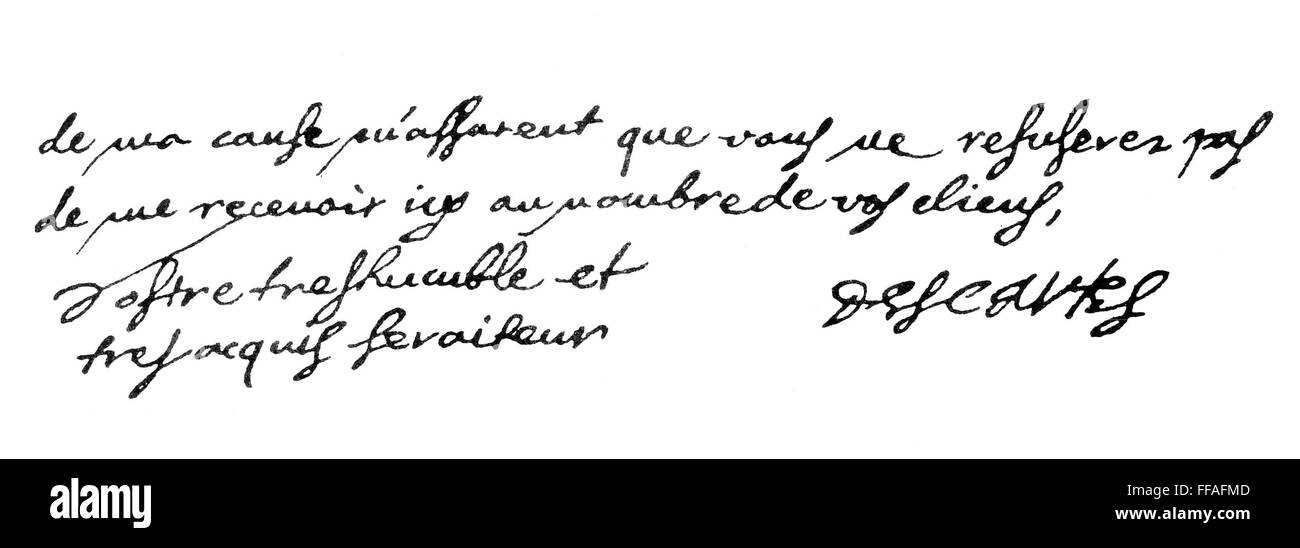 de ma cause m'assurent que vous ne refuserez pas
de me recevoir icy au nombre de vos cliens,
Vostre tres humble et
tres acquis serviteur
DESCARTES
alamy
Image ID: FFAFMD
www.alamy.com